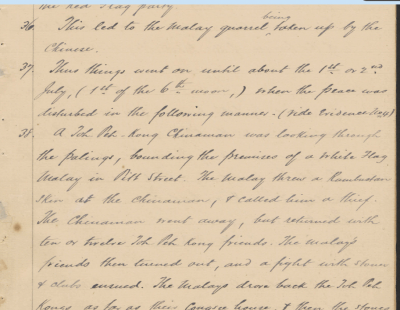 the Red Flag party
36. This led to the Malay quarrel being taken up by the
Chinese.
37. Thus things went on until about the 1st or 2nd
July, (1st of the 6th moon,) when the peace was
disturbed in the following manner. (Vide Evidence No 41)
38. A Toh Peh Kong Chinaman was looking through
the palings, bounding the premises of a White Flag
Malay in Street. The Malay threw a Rambutan
skin at the Chinaman, & called him a thief.
The Chinaman went away, but returned with
ten or twelve Toh Peh Kong friends. The Malay's
friends then turned out, and a fight with stones
& clubs ensued. The Malays drove back the Toh Peh
Kongs as far as their Congsee house, & then the stones